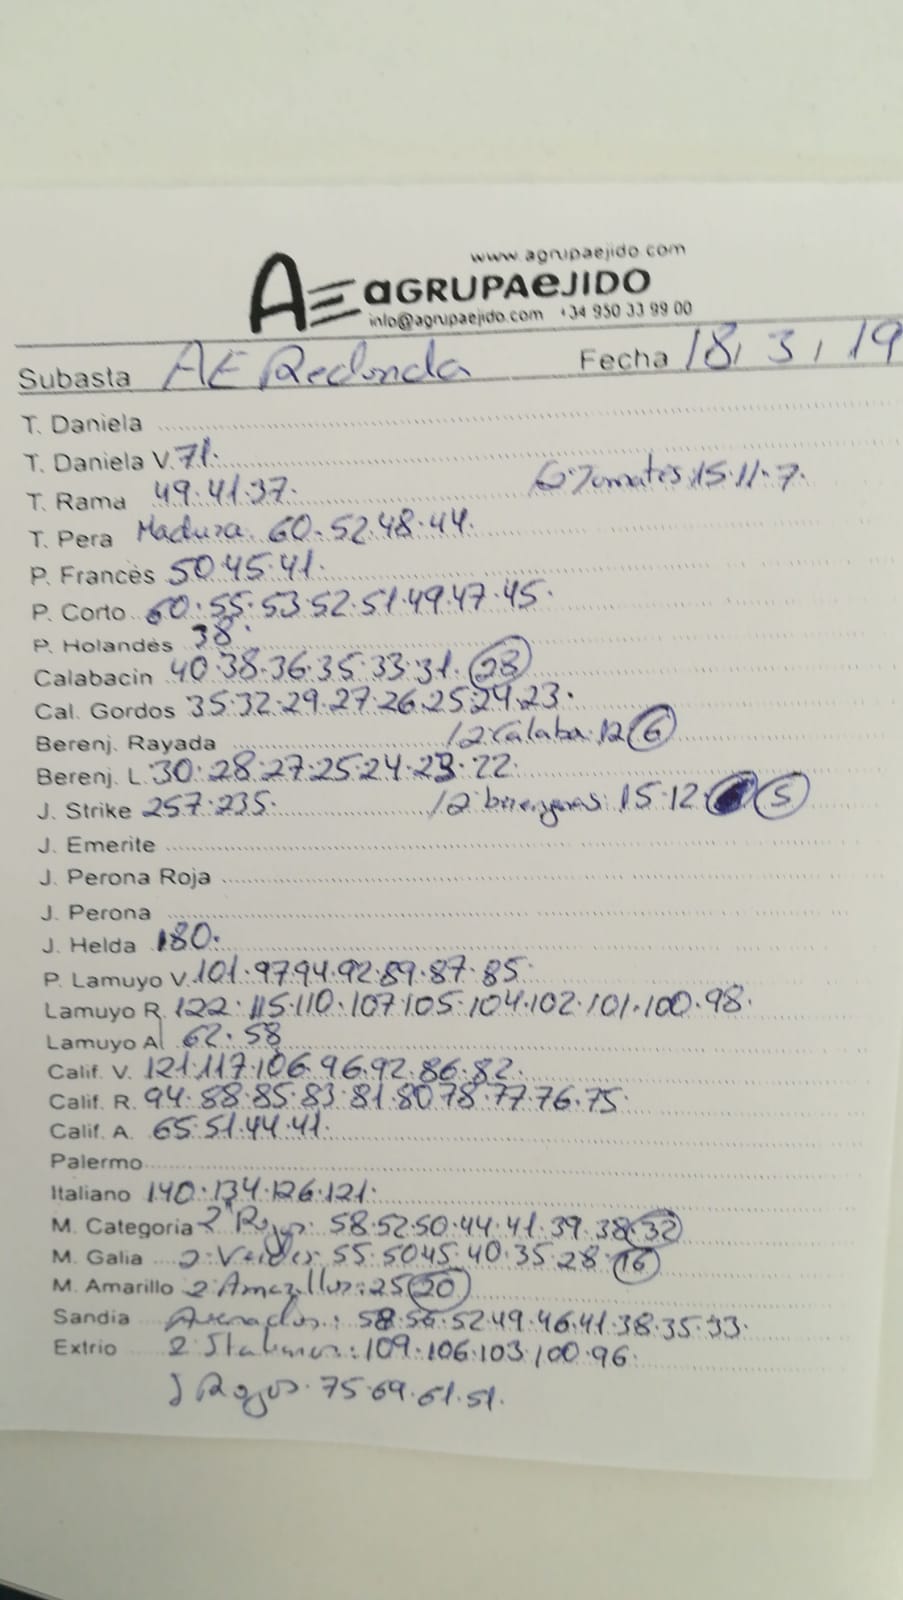 www.agrupaejido.com
AE aGRUPAeJIDO
info@agrupaejido.com +34 950 33 99 00
Subasta AE Redonda Fecha 18, 3, 19
T. Daniela
T. Daniela V. 71.
T. Rama 49.41.37. G Tomates 15.11.7.
T. Pera Madura. 60.52.48.44.
P. Francés 50.45.41.
P. Corto 60.55.53.52.51.49.47.45.
P. Holandés 38.
Calabacin 40.38.36.35.33.31.(28)
Cal. Gordos 35.32.29.27.26.25.24.23.
Berenj. Rayada /2 Calaba: 12 (6)
Berenj. L 30.28.27.25.24.23.22.
J. Strike 257.235. /2 berengenas: 15.12. (5)
J. Emerite
J. Perona Roja
J. Perona
J. Helda 180.
P. Lamuyo V. 101.97.94.92.89.87.85.
Lamuyo R. 122.115.110.107.105.104.102.101.100.98.
Lamuyo A 62.58
Calif. V. 121.117.106.96.92.86.82.
Calif. R. 94.88.85.83.81.80.78.77.76.75.
Calif. A. 65.51.44.41.
Palermo
Italiano 140.134.126.121.
M. Categoria 2ª Rojos: 58.52.50.44.41.39.38.(32)
M. Galia 2 Verdes: 55.50.45.40.35.28.(16)
M. Amarillo 2 Amarillos: 25 (20)
Sandia Asurados: 58.56.52.49.46.41.38.35.33.
Extrio 2 Italianos: 109.106.103.100.96.
J Rojos. 75.69.61.51.